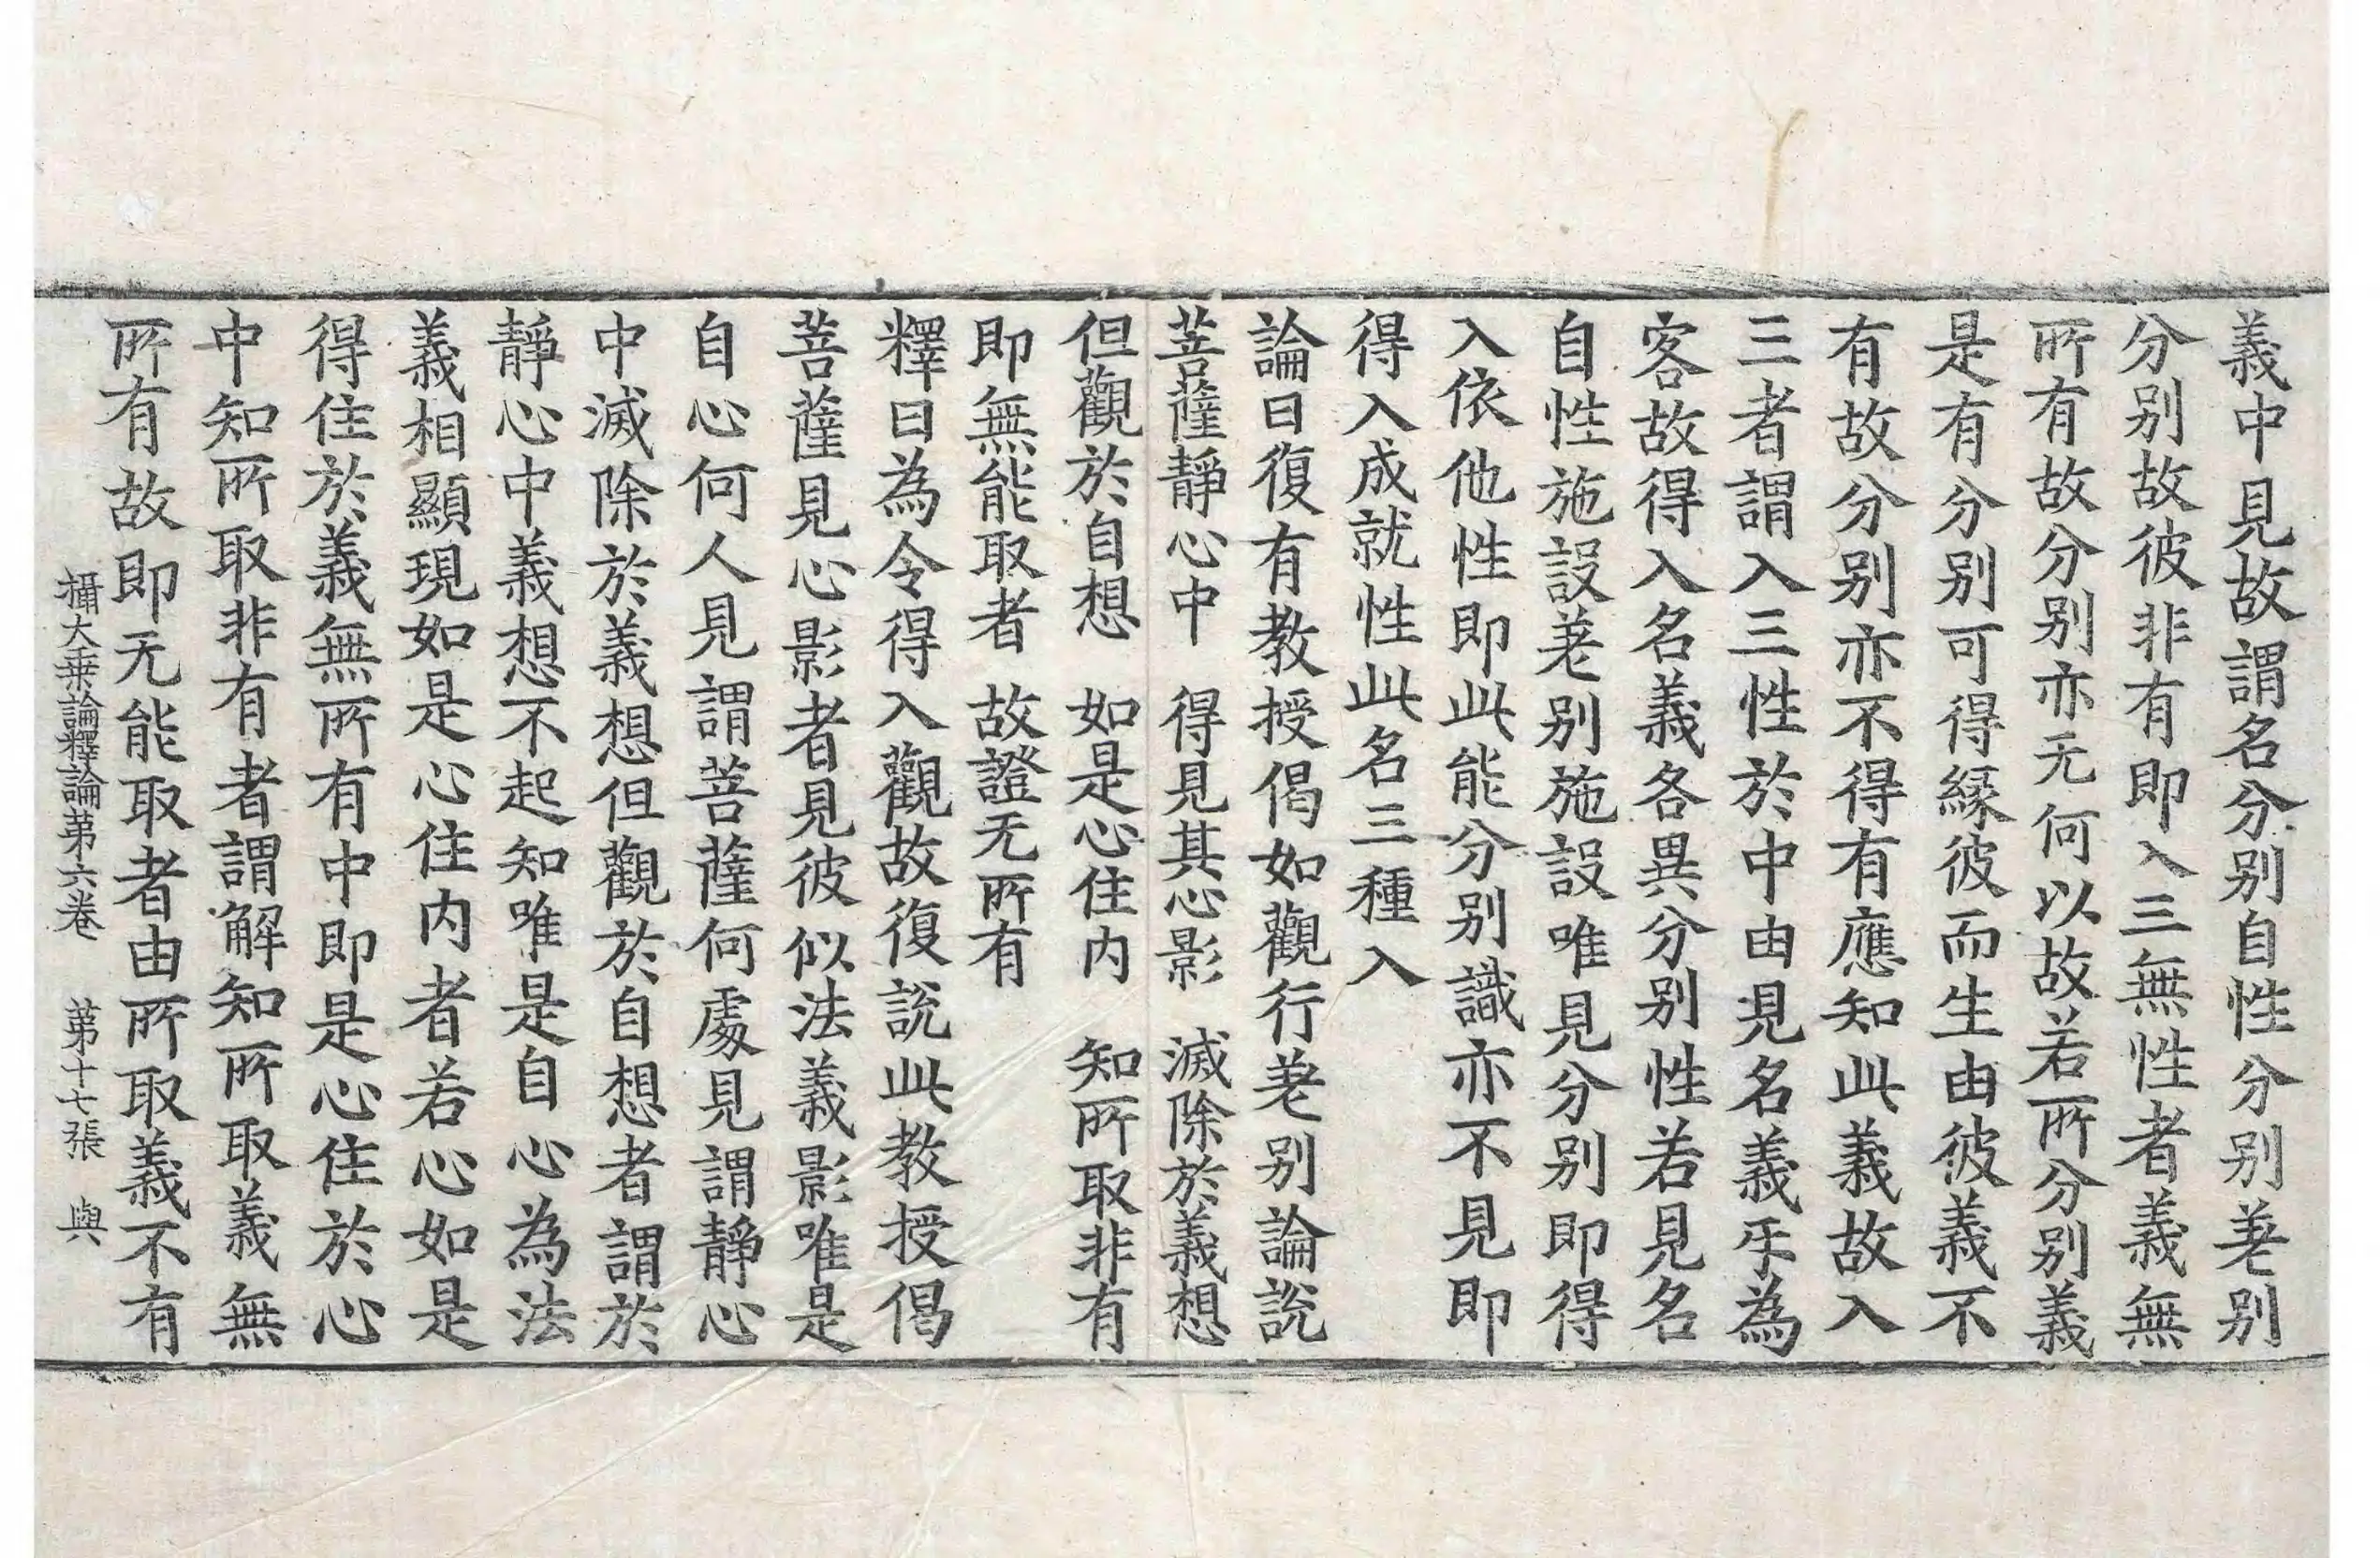 義中見故謂名分別自性分別差別
分別故彼非有即入三無性者義無
所有故分別亦无何以故若所分別義
是有分別可得縁彼而生由彼義不
有故分別亦不得有應知此義故入
三者謂入三性於中由見名義㸦為
客故得入名義各異分別性若見名
自性施設差別施設唯見分別即得
入依他性即此能分別識亦不見即
得入成就性此名三種入
論曰復有教授偈如觀行差別論說
菩薩靜心中　得見其心影　滅除於義想
但觀於自想　如是心住内　知所取非有
即無能取者　故證无所有
釋曰為令得入觀故復說此教授偈
菩薩見心影者見彼似法義影唯是
自心何人見謂菩薩何處見謂靜心
中滅除於義想但觀於自想者謂於
靜心中義想不起知唯是自心為法
義相顯現如是心住内者若心如是
得住於義無所有中即是心住於心
中知所取非有者謂解知所取義無
所有故即无能取者由所取義不有
攝大乗論釋論第六卷　第十七張　與